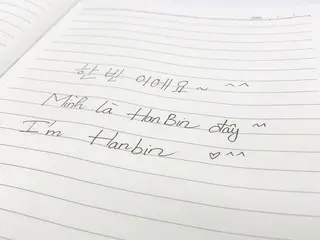 한빈이에요~ ^^
Mình là HanBin đây ^^
I'm Hanbin ♡^^